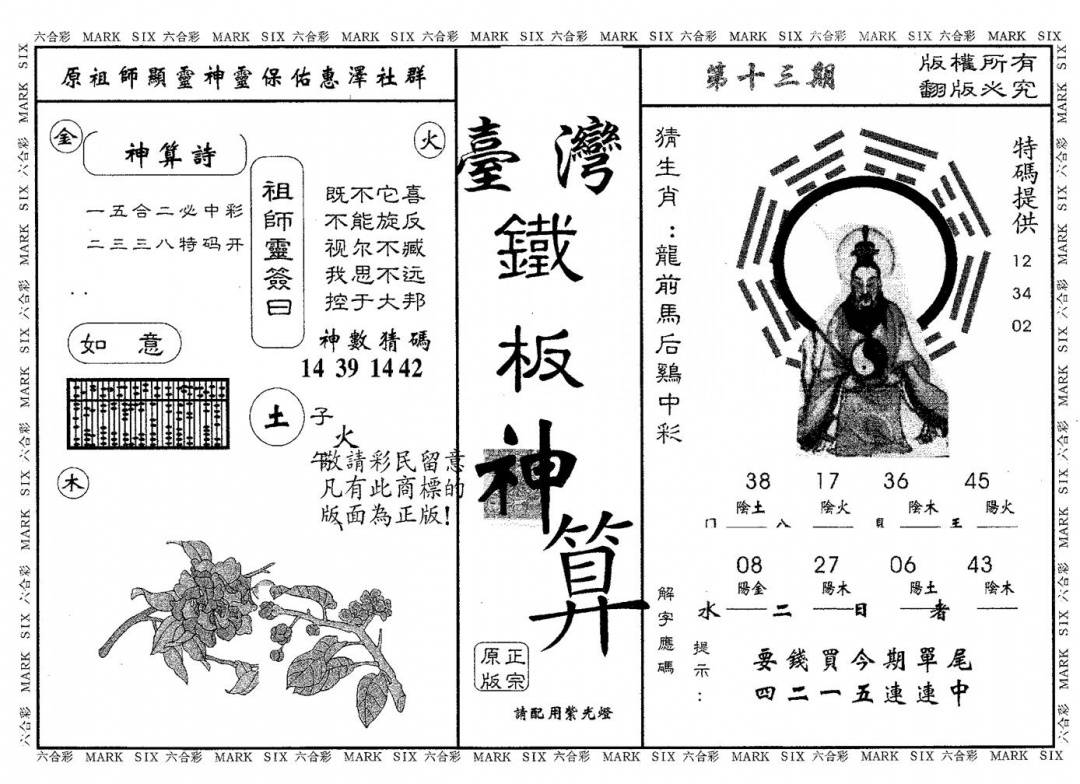 六合彩 MARK SIX 六合彩 MARK SIX 六合彩 MARK SIX 六合彩 MARK SIX 六合彩 MARK SIX 六合彩 MARK SIX 六合彩 MARK SIX 六合彩 MARK SIX
原祖師顯靈神靈保佑惠澤社群
金
火
神算詩
一五合二必中彩
二三三八特码开
祖師靈簽曰
既不它喜
不能旋反
视尔不臧
我思不远
控于大邦
神數猜碼
14 39 14 42
如意
土
子
火
午
木
敬請彩民留意
凡有此商標的
版面為正版!
臺灣
鐵
板
神
算
正宗
原版
請配用紫光燈
第十三期
版權所有
翻版必究
猜生肖：龍前馬后鷄中彩
特碼提供
12
34
02
38 17 36 45
陰土 陰火 陰木 陽火
08 27 06 43
陽金 陽木 陽土 陰木
水 二 日 者
解字應碼
提示：
要錢買今期單尾
四二一五連連中
六合彩 MARK SIX 六合彩 MARK SIX 六合彩 MARK SIX 六合彩 MARK SIX 六合彩 MARK SIX 六合彩 MARK SIX 六合彩 MARK SIX 六合彩 MARK SIX